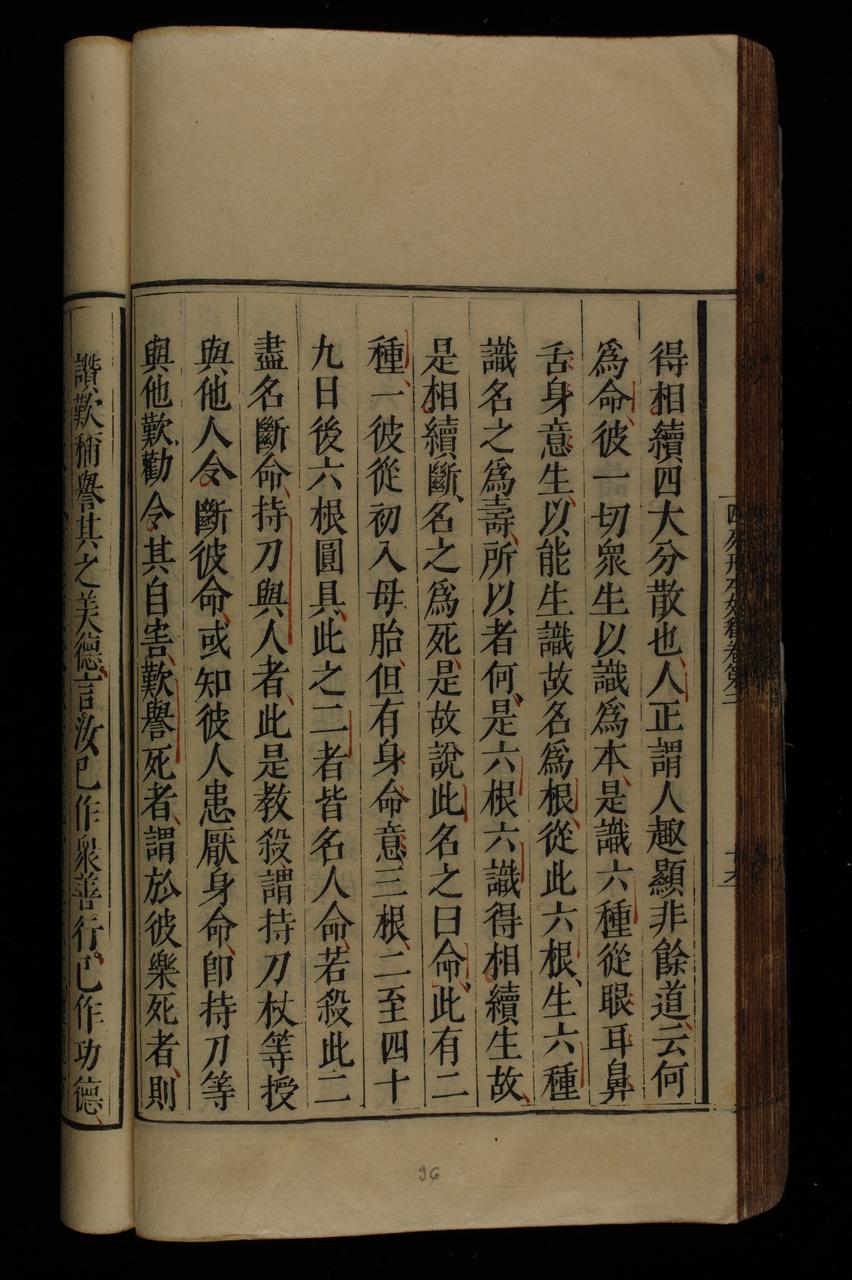 得相續四大分散也人正謂人趣顯非餘道云何
為命彼一切眾生以識為本是識六種從眼耳鼻
舌身意生以能生識故名為根從此六根生六種
識名之為壽所以者何是六根六識得相續生故
是相續斷名之為死是故說此名之曰命此有二
種一彼從初入母胎但有身命意三根二至四十
九日後六根圓具此之二者皆名人命若殺此二
盡名斷命持刀與人者此是教殺謂持刀杖等授
與他人令斷彼命或知彼人患厭身命即持刀等
與他歎勸令其自害歎譽死者謂於彼樂死者則
讚歎稱譽其之美德言汝已作眾善行已作功德
96